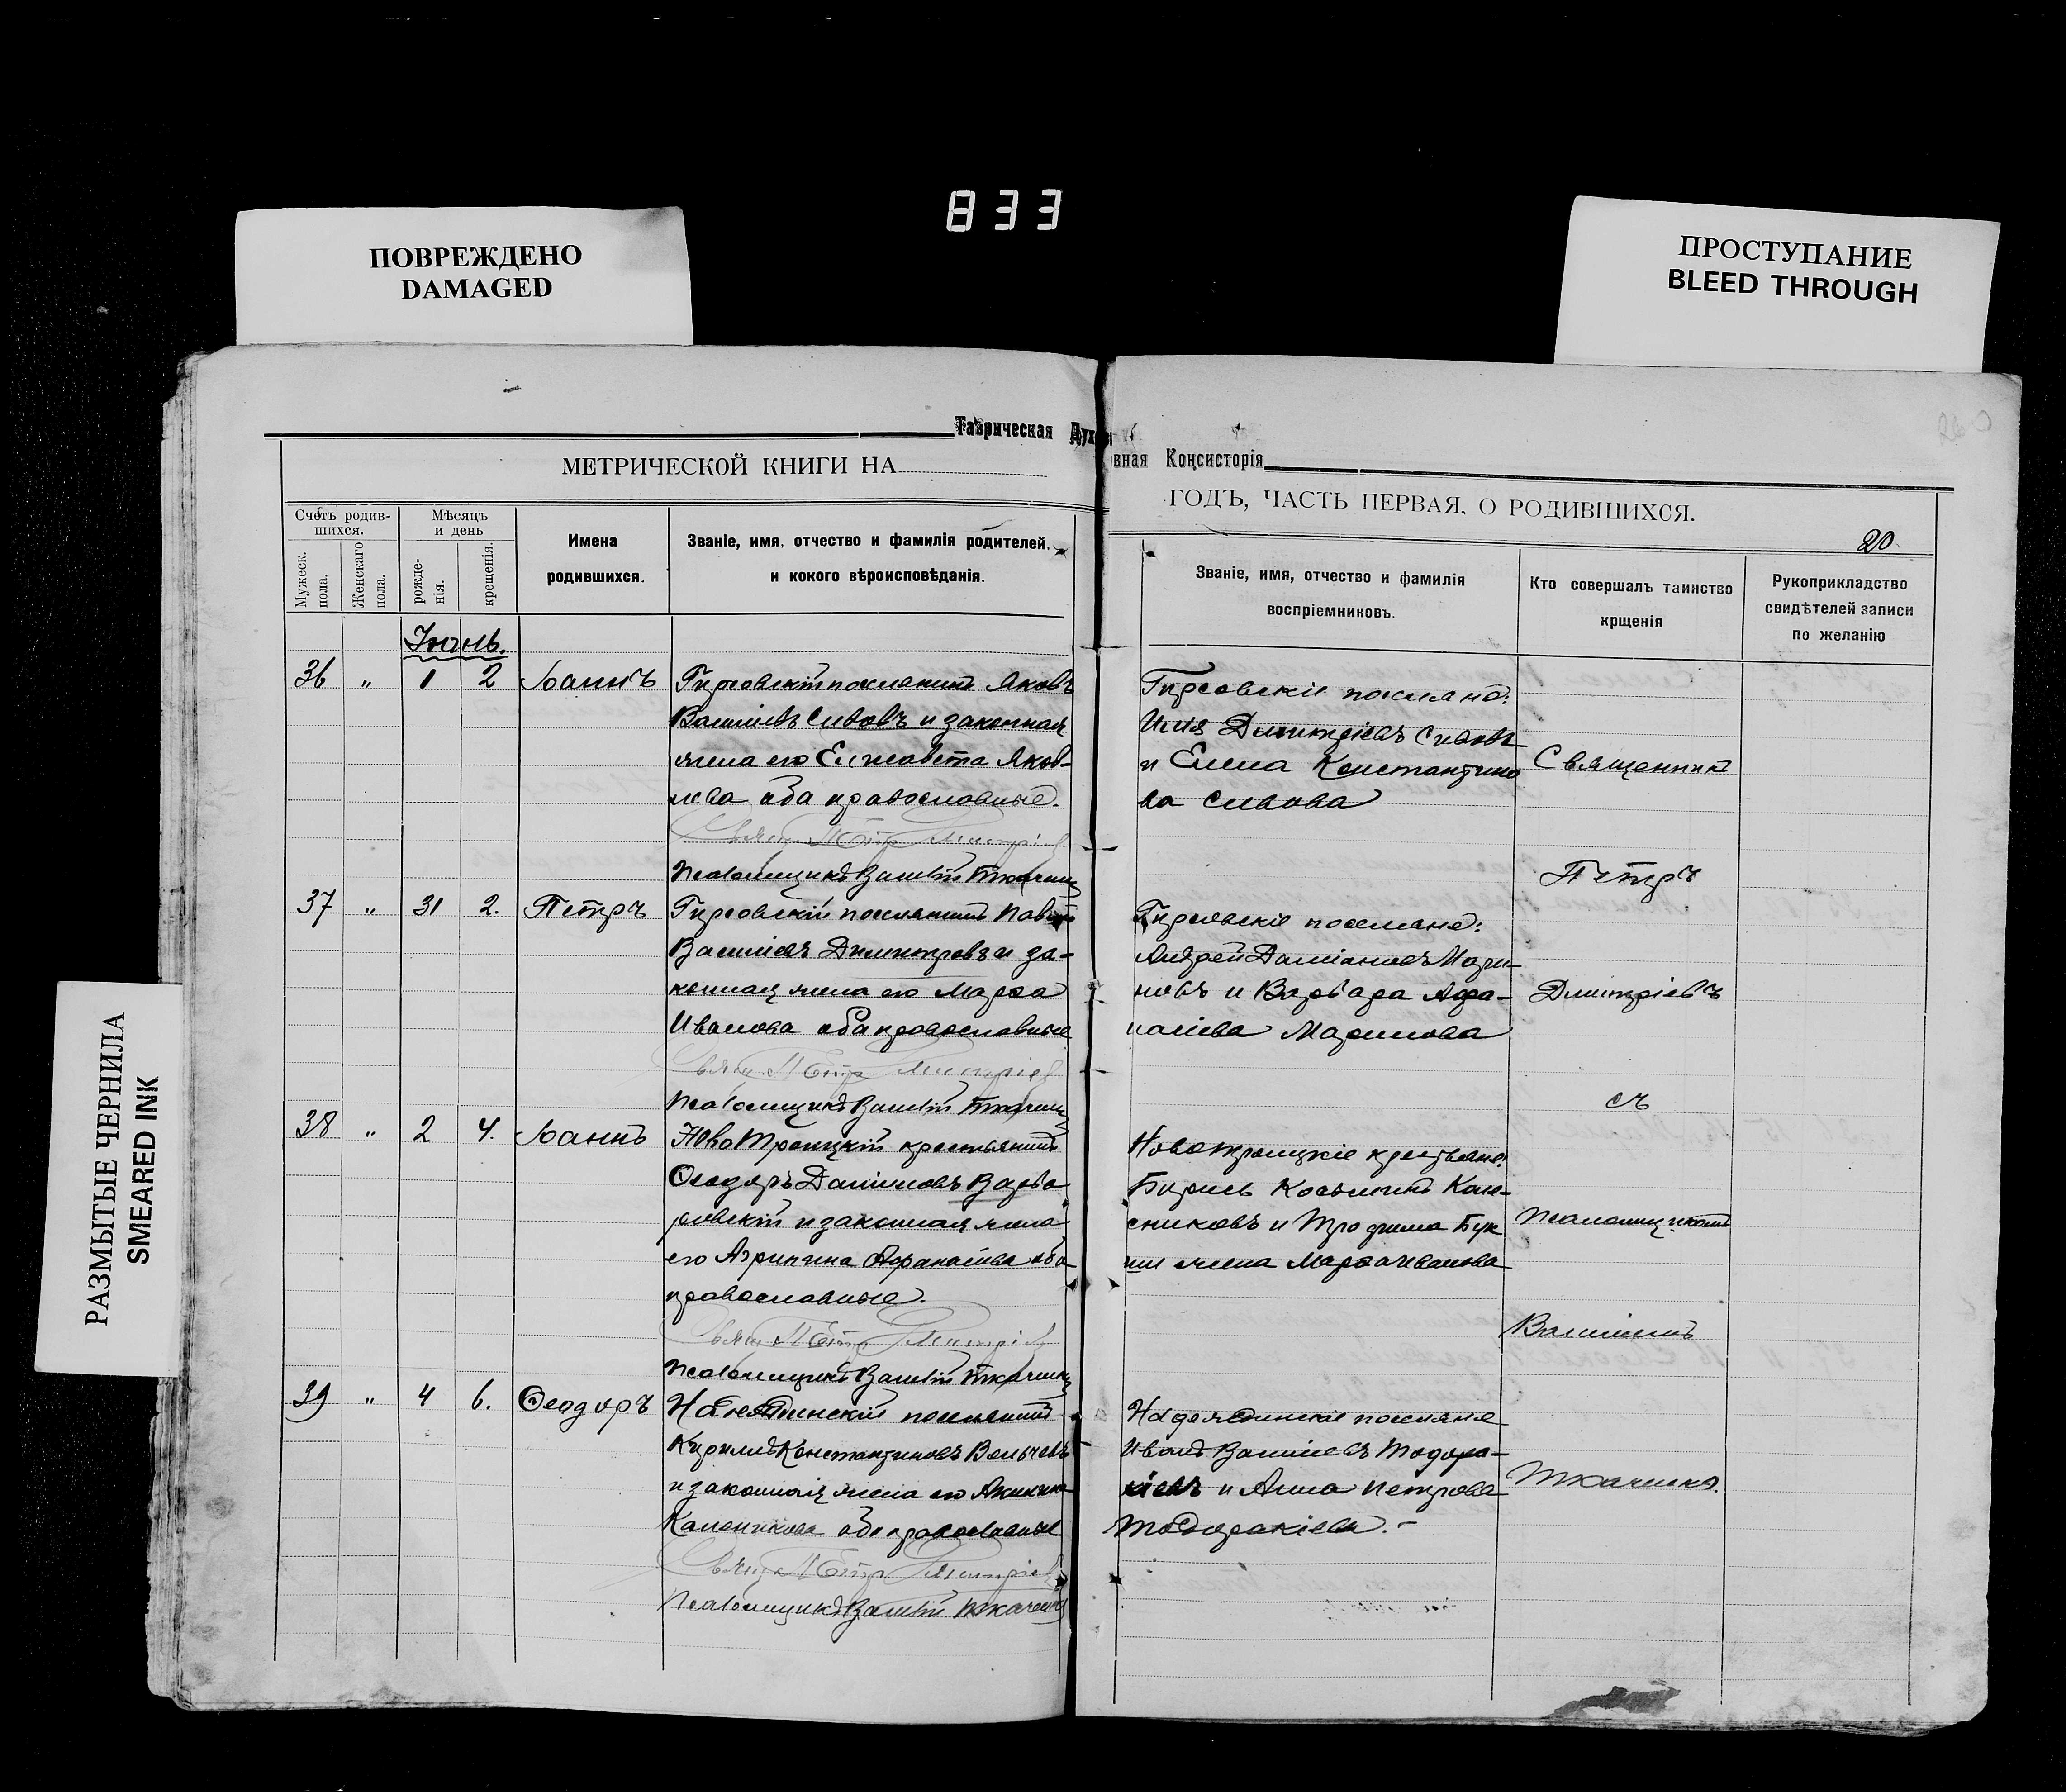 833
ПОВРЕЖДЕНО
DAMAGED
ПРОСТУПАНИЕ
BLEED THROUGH
РАЗМЫТЫЕ ЧЕРНИЛА
SMEARED INK
Таврическая Духо
вная Консисторія
МЕТРИЧЕСКОЙ КНИГИ НА
ГОДЪ, ЧАСТЬ ПЕРВАЯ, О РОДИВШИХСЯ.
20.
Счетъ родив-
шихся.
Мужеск. пола.
Женскаго пола.
Мѣсяцъ
и день
рожде-
нія.
крещенія.
Имена
родившихся.
Званіе, имя, отчество и фамилія родителей,
и кокого вѣроисповѣданія.
Званіе, имя, отчество и фамилія
воспріемниковъ.
Кто совершалъ таинство
крщенія
Рукоприкладство
свидѣтелей записи
по желанію
Іюнь.
36 " 1 2 Іоаннъ Гирсовскій поселянинъ Яковъ
Василіевъ Сивовъ и законная
жена его Елисавета Яков-
лева оба православные.
Свящ. Петръ Димитріевъ
Псаломщикъ Василій Ткаченко
Гирсовскіе поселяне:
Илія Димитріевъ Сивовъ
и Елена Константино
ва Сивова
37 " 31 2. Петръ Гирсовскій поселянинъ
Василіевъ Димитровъ и за-
конная жена его Марѳа
Иванова оба православные
Свящ. Петръ Димитріевъ
Псаломщикъ Василій Ткаченко
Гирсовскіе поселяне:
Андрей Даміановъ Мари-
новъ и Варвара Афа-
насіева Маринова
38 " 2 4. Іоаннъ НовоТроицкій крестьянинъ
Ѳеодоръ
и законная жена
его Агрипина Афанасіева оба
православные.
Свящ. Петръ Димитріевъ
Псаломщикъ Василій Ткаченко
Новотроицкіе крестьяне:
Борисъ Косьминъ
и Трофима
жена Марѳа Иванова
39 " 4 6. Ѳеодоръ поселянинъ
Кирилъ Константиновъ Вельчевъ
и законная жена его
оба православные
Свящ. Петръ Димитріевъ
Псаломщикъ Василій Ткаченко
поселяне
Иванъ Василіевъ Тодора-
кіевъ и Анна Петрова
Тодоракіева.-
Священникъ
Петръ
Димитріевъ
съ
Псаломщикомъ
Василіемъ
Ткаченко.